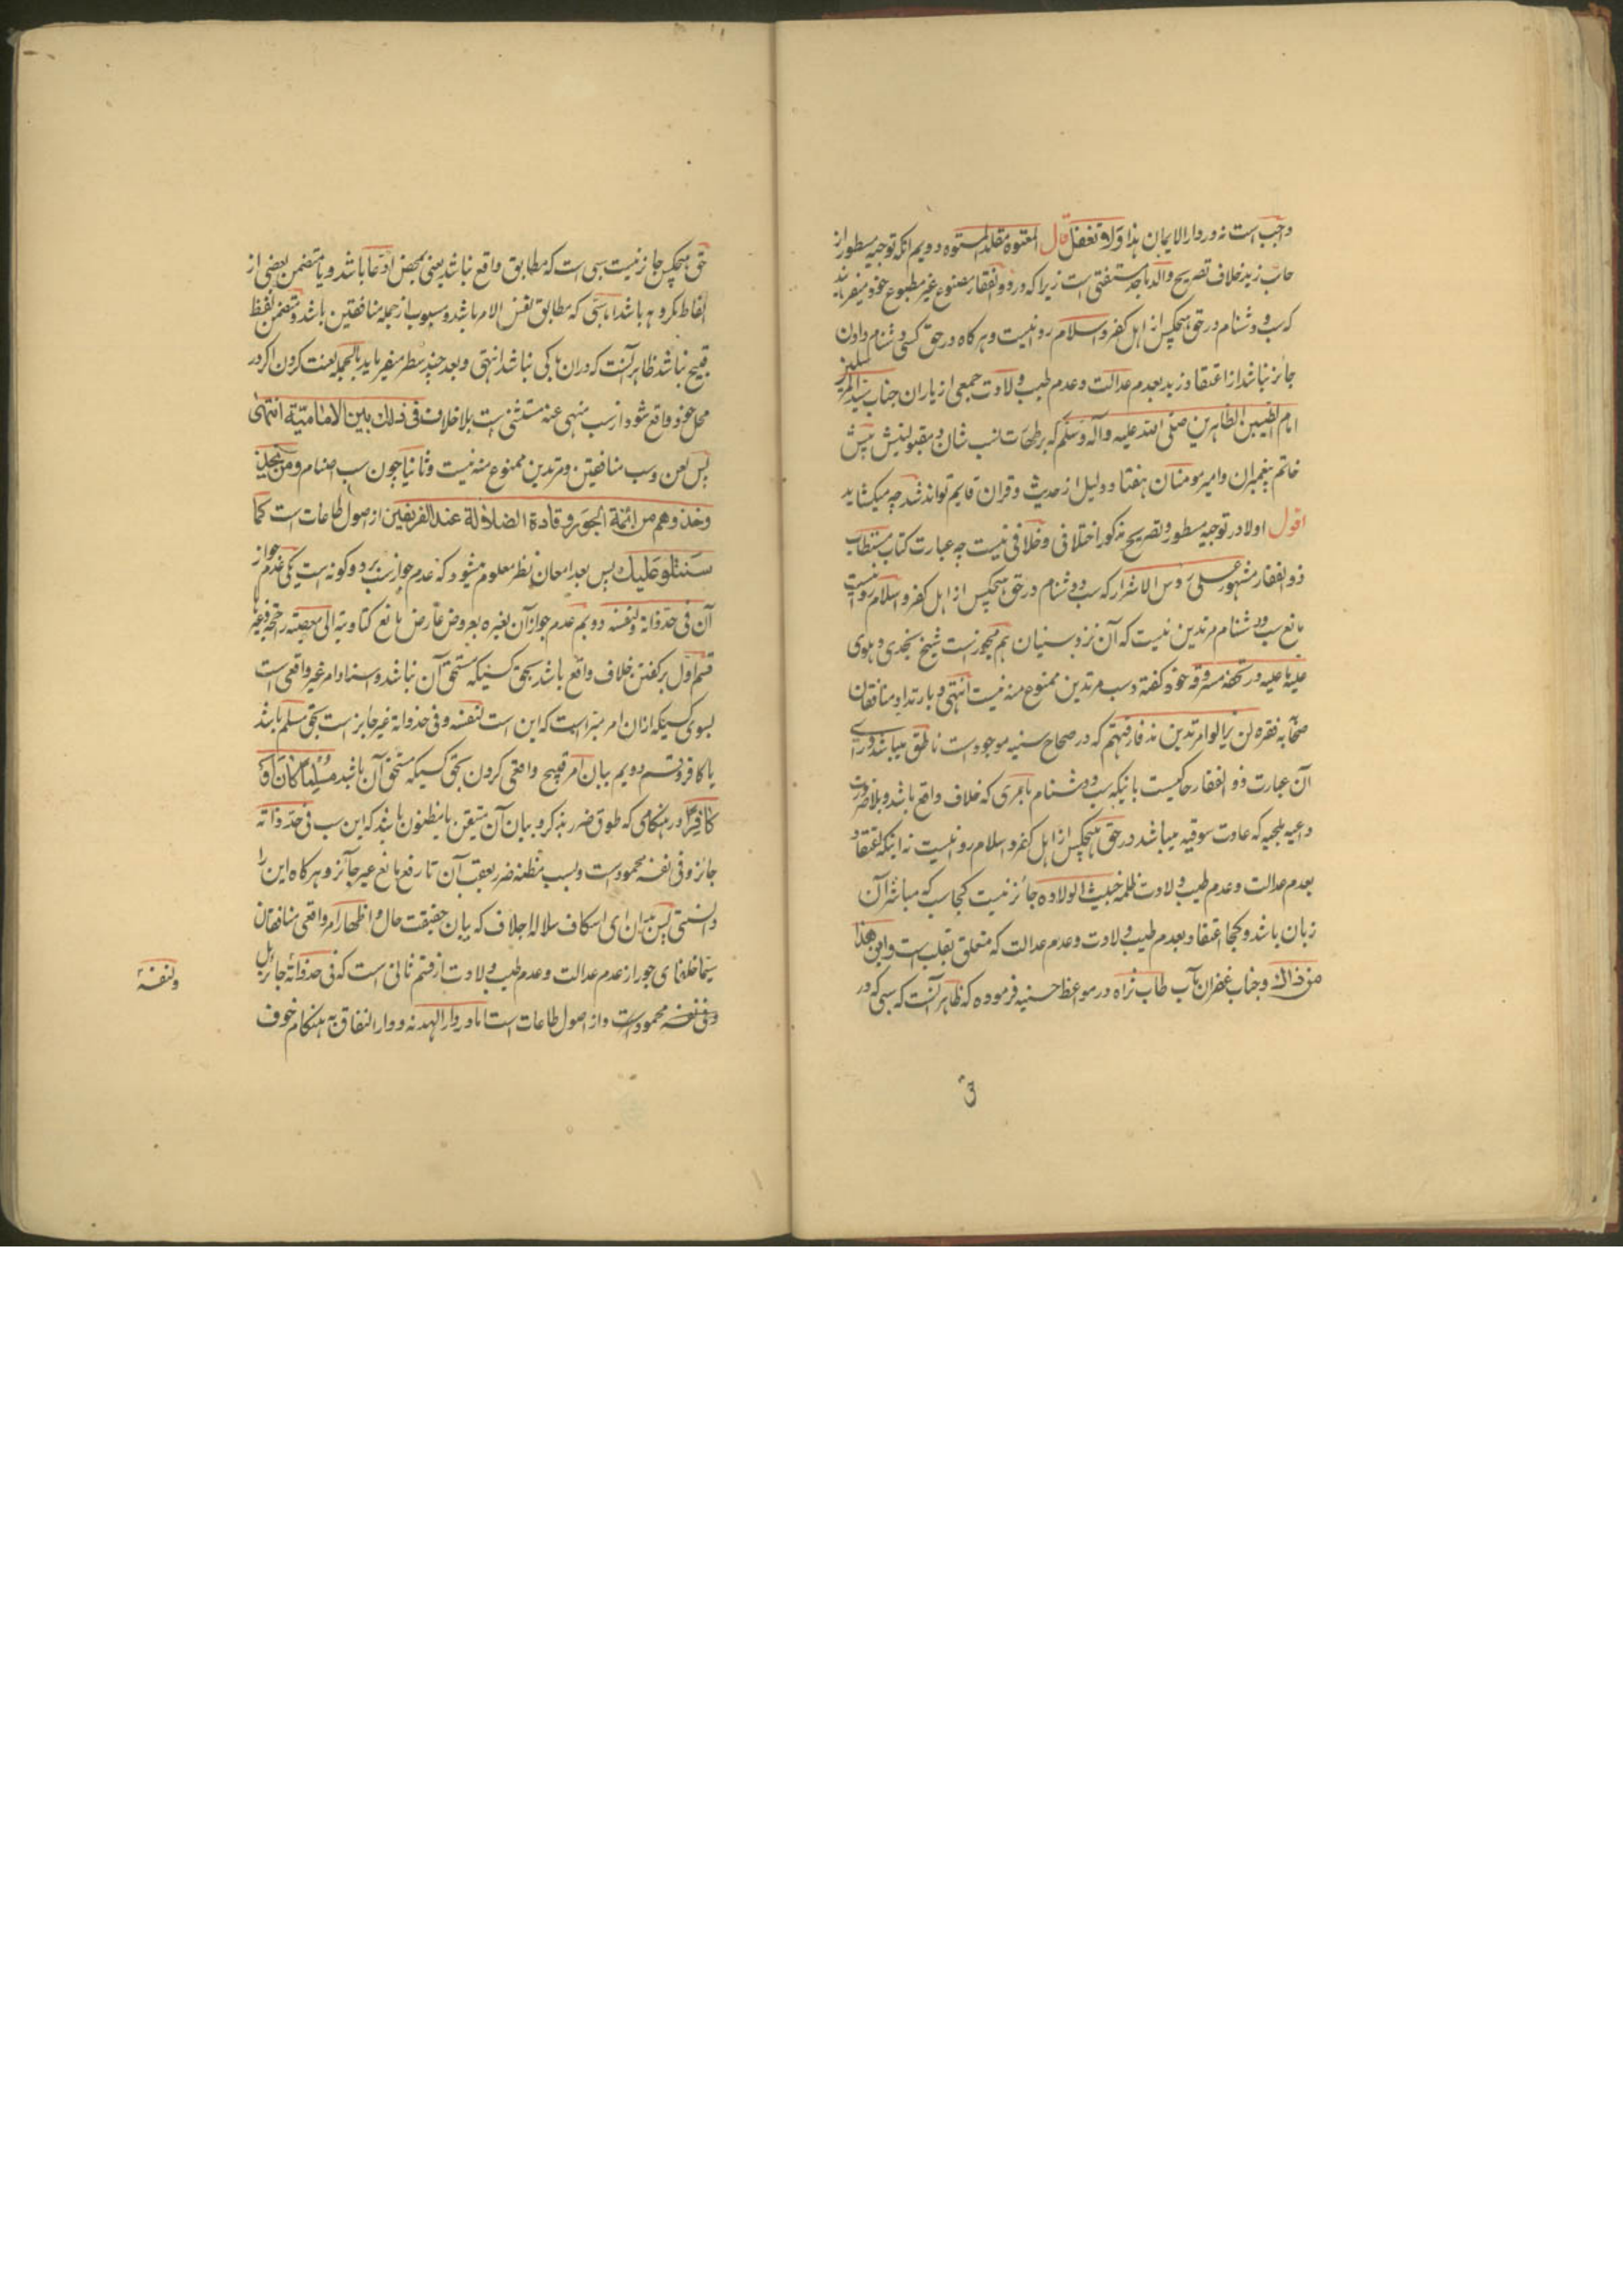 واجب است نه در دار الایمان هذا ولا تغفل قال المعتوه مقلد المستوه دویم انکه توجیه مسطور از
جانب زید خلاف تصریح والد ماجد مستفتی است زیرا که در ذو الفقار مصنوع غیر مطبوع خود میفرمایند
که سب و دشنام در حق هیچکس از اهل کفر و اسلام روا نیست و هر کاه در حق کسی دشنام دادن
جائز نباشد از اعتقاد زید بعدم عدالت و عدم طیب ولادت جمعی از یاران جناب سید المرسلین
امام الطیبین الطاهرین صلی الله علیه وآله وسلم که بر طهارت نسب شان و مقبولیتش پیش
خاتم پیغمبران و امیر مومنان هفتاد و دلیل از حدیث و قران قایم تواند شد چه میکشاید
اقول اولا در توجیه مسطور و تصریح مذکور اختلافی و خلافی نیست چه عبارت کتاب مستطاب
ذو الفقار مشهور علی رؤس الاشرار که سب و دشنام در حق هیچکس از اهل کفر و اسلام روا نیست
مانع سب و دشنام مرتدین نیست که آن نزد سنیان هم مجوز است شیخ نجدی دهلوی
علیه ما علیه در تحفه مسروقه خود کفته و سب مرتدین ممنوع منه نیست انتهی و بارتداد منافقان
صحابه فقره لن یزالوا مرتدین مذ فارقتهم که در صحاح سنیه موجود است ناطق میباشد ورای
آن عبارت ذو الفقار حاکیست بانیکه سب و دشنام بامری که خلاف واقع باشد و بلا ضرورت
داعیه ملجیه که عادت سوقیه میباشد در حق هیچکس از اهل کفر و اسلام روا نیست نه اینکه اعتقاد
بعدم عدالت و عدم طیب ولادت ظلمه خبیث الولاده جائز نیست کجا سب که مباشر آن
زبان باشد و کجا اعتقاد بعدم طیب ولادت و عدم عدالت که متعلق بقلب است واین هذا
من ذاك و جناب غفران مآب طاب ثراه در مواعظ حسنیه فرموده که ظاهر آنست که سبی که در
حق هیچکس جایز نیست سبی است که مطابق واقع نباشد یعنی محض ادعا باشد و یا متضمن بعضی از
الفاظ مکروهه باشد اما سبی که مطابق نفس الامر باشد و مسبوب از جمله منافقین باشد و متضمن لفظ
قبیح نباشد ظاهر آنست که در ان باکی نباشد انتهی و بعد چند سطر میفرماید بالجمله لعنت کردن اکر در
محل خود واقع شود از سب منهی عنه مستثنی است بلا خلاف فی ذلك بین الامامیة انتهی
پس لعن و سب منافقین و مرتدین ممنوع منه نیست و ثانیا چون سب اصنام و من
وخذوهم من ائمة الجور و قادة الضلالة عند الفریقین از اصول طاعات است کما
سنتلو علیك پس بعد امعان نظر معلوم میشود که عدم جواز سب بر دو کونه است یکی عدم جواز
آن فی حد ذاته ولنفسه دویم عدم جواز آن لغیره بعروض عارض مانع کتادیته الی معصیته راجحه وغیرها
قسم اول بر کفتن خلاف واقع باشد بحق کسیکه مستحق آن نباشد و اسناد امر غیر واقعی است
بسوی کسیکه ازان امر مبراست که این است لنفسه و فی حد ذاته غیر جایز است بحق مسلم باشد
یا کافر و قسم دویم بیان امر قبیح واقعی کردن بحق کسیکه مستحق آن باشد مسلما کان او
کافرا در هنکامی که طوق ضرر بذکر و بیان آن متیقن یا مظنون باشد که این سب فی حد ذاته
جائز و فی نفسه محمود است و بسبب مظنه ضرر بعقب آن تا رفع مانع غیر جائز و هر کاه این را
دانستی پس بدان ای اسکاف سلاله اجلاف که بیان حقیقت حال و اظهار امر واقعی منافقان
سیما خلفای جور از عدم عدالت و عدم طیب ولادت از قسم ثانی است که فی حد ذاته جائز بل
وفی نفسه محمود است و از اصول طاعات است اما در دار الهدنه و دار النفاق به هنکام خوف
ولنفسه